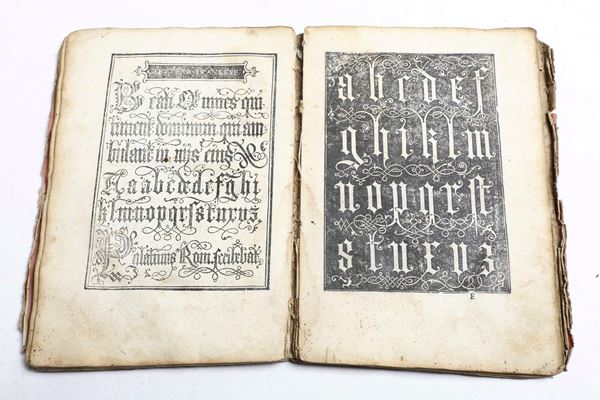 LETTERA FRANCESE
Beati Omnes qui
timent dominum qui am
bulant in uijs eius
Aaabcdedefghi
klmnopqrsstuxuz
Palatinus Rom. scribebat
abcdef
ghiklm
nopqrst
stuxuz
E